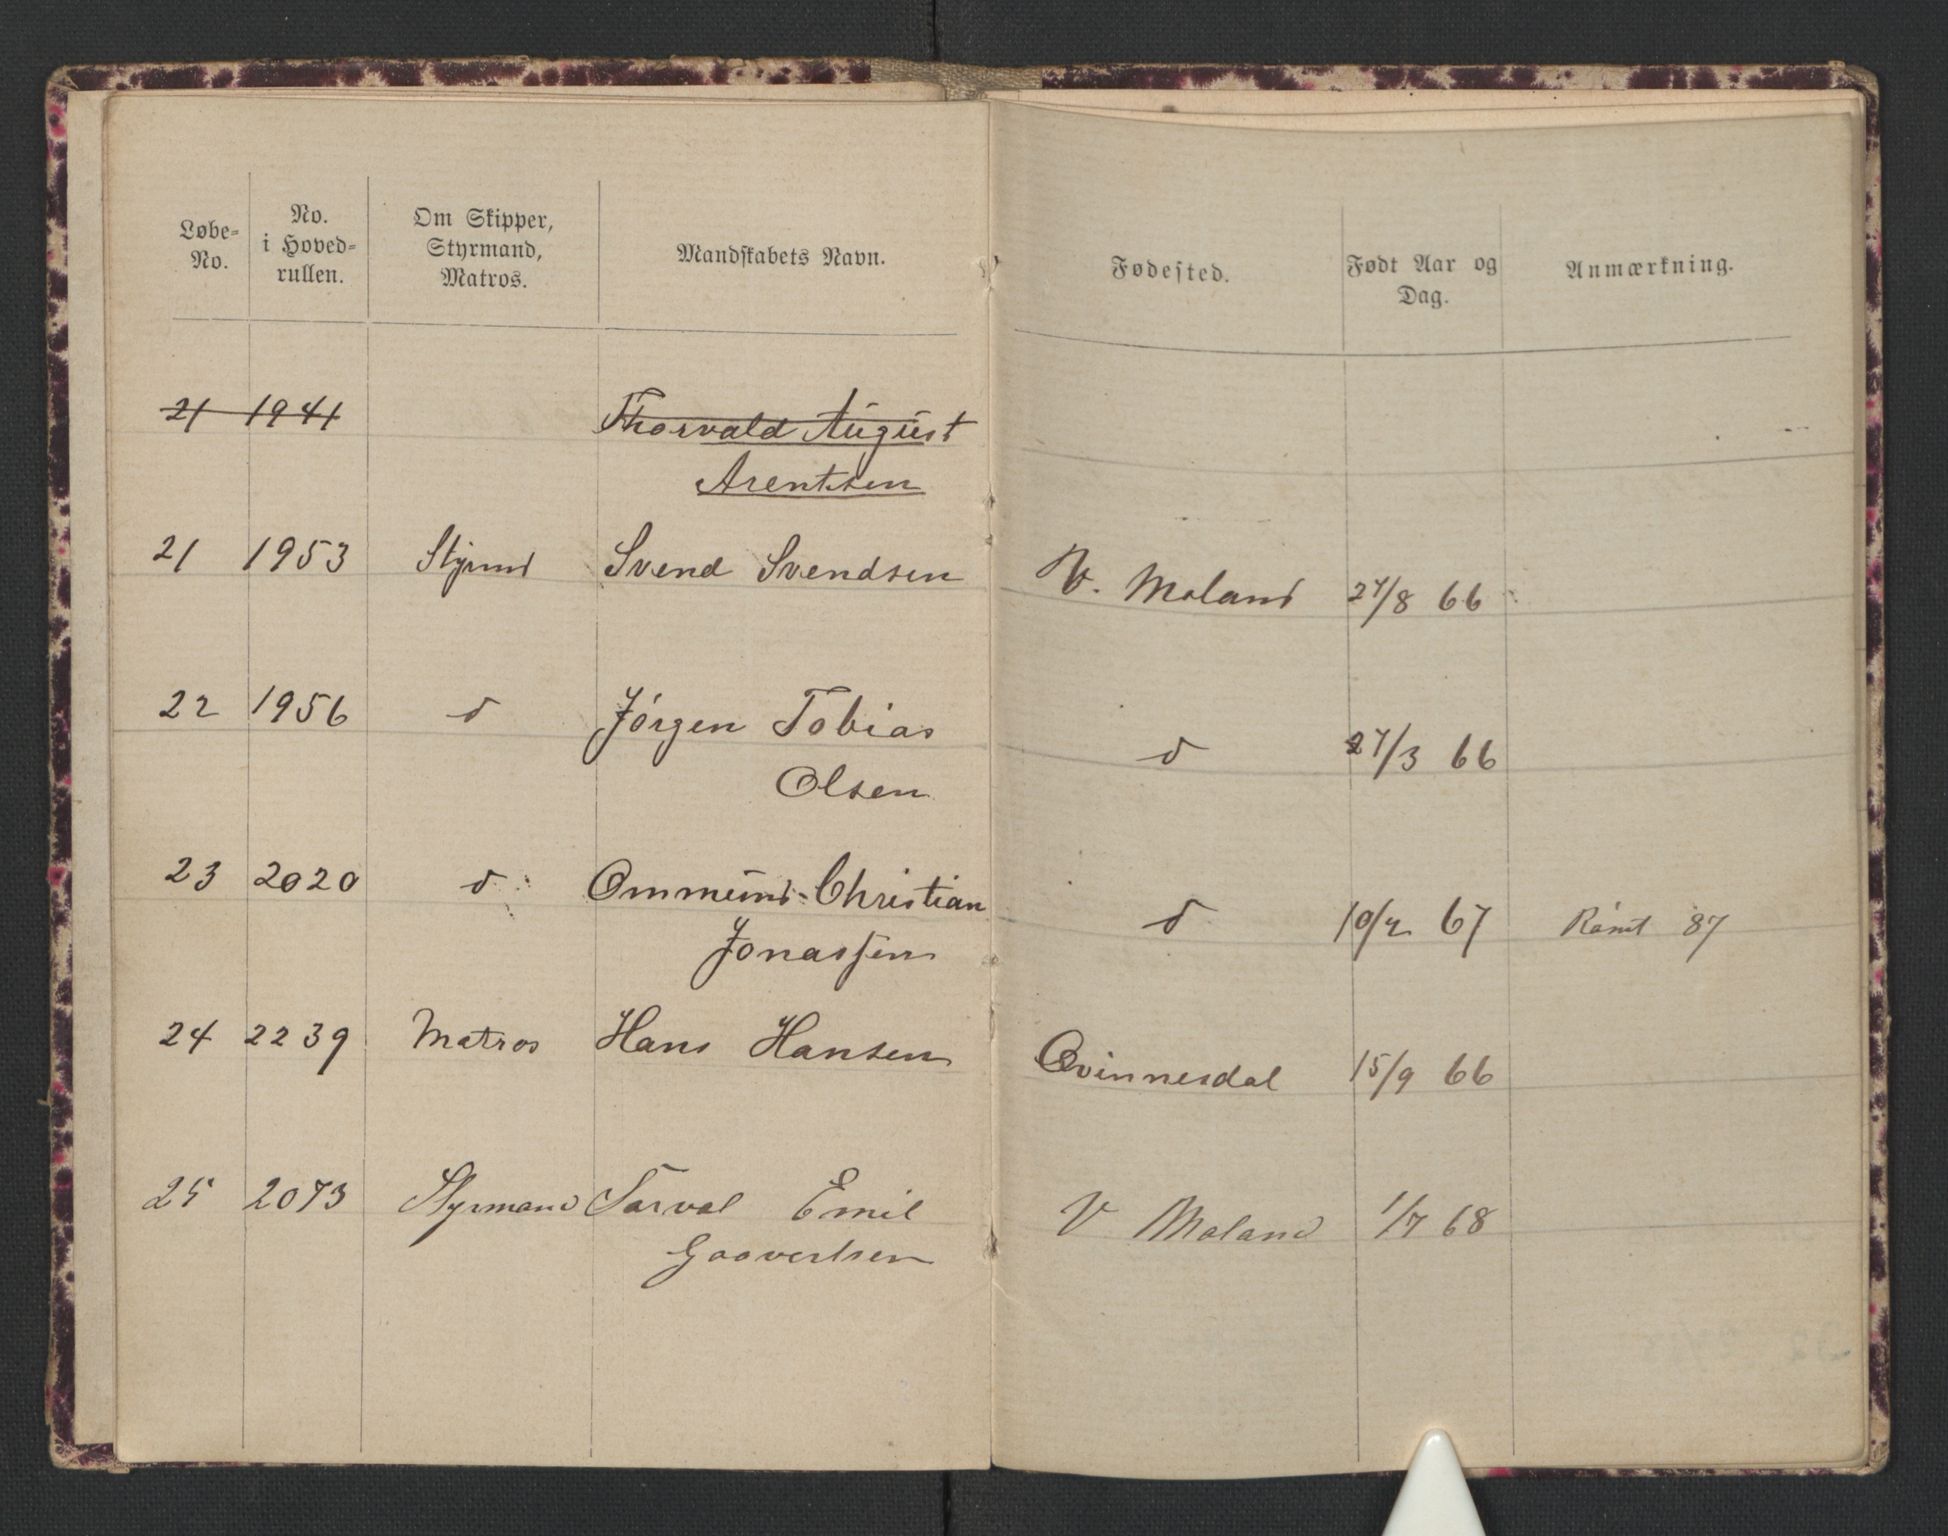 Løbe-No. No. i Hoved-rullen. Om Skipper, Styrmand, Matros. Mandskabets Navn. Fødested. Født Aar og Dag. Anmærkning.
21 1941 Thorvald August
Arentsen
21 1953 Styrmd Svend Svendsen V. Moland 27/8 66
22 1956 d Jórgen Tobias d 27/3 66
Olsen
23 2020 d Ommund Christian d 10/2 67 Rómt 87
Jonassen
24 2239 Matros Hans Hansen Qvinnesdal 15/9 66
25 2073 Styrmand Torval Emil V Moland 1/7 68
Goovertsen